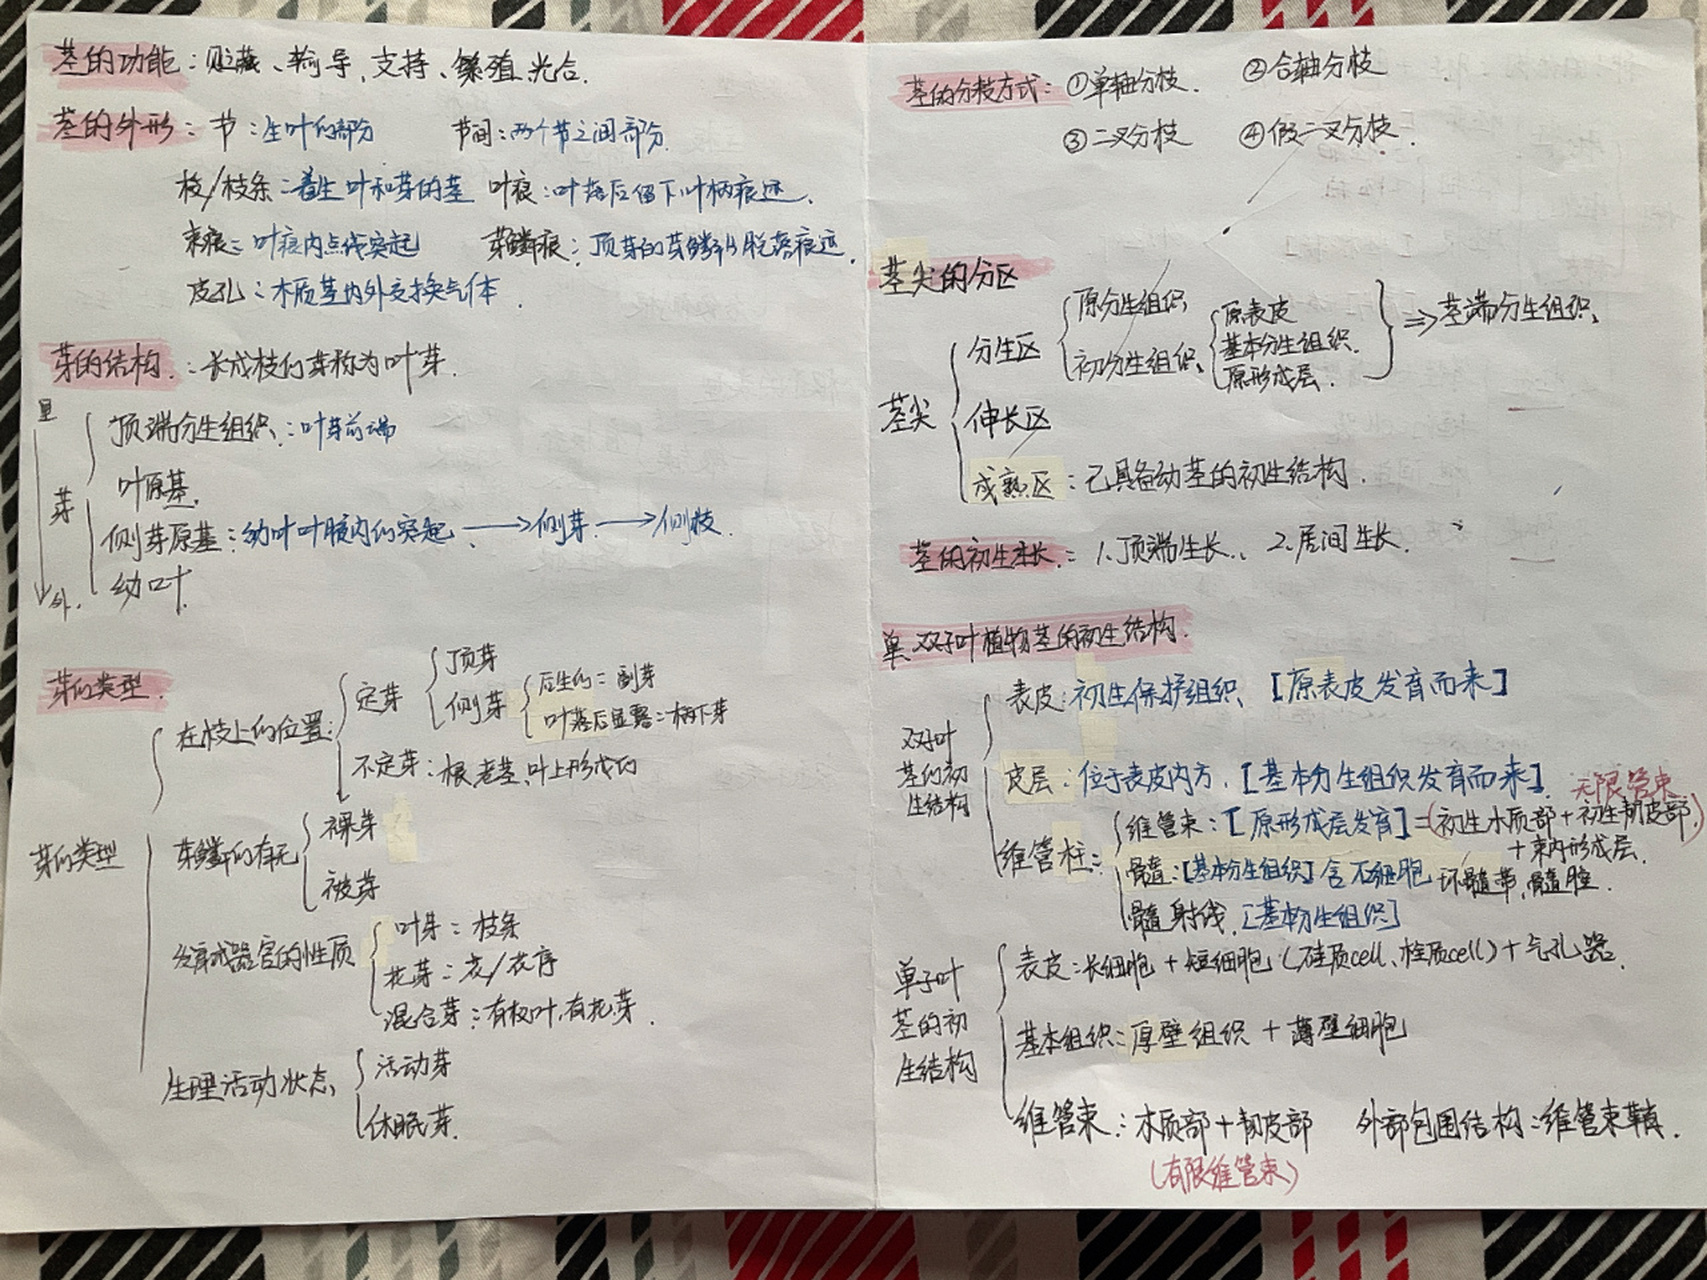 茎的功能：贮藏、输导、支持、繁殖、光合.
茎的外形：节：生叶的部分 节间：两个节之间部分.
枝/枝条：着生叶和芽的茎 叶痕：叶落后留下叶柄痕迹.
束痕：叶痕内点线突起 芽鳞痕：顶芽的芽鳞片脱落痕迹.
皮孔：木质茎内外交换气体.
芽的结构：长成枝的芽称为叶芽.
里
外.
芽
顶端分生组织：叶芽前端
叶原基.
侧芽原基：幼叶叶腋内的突起. → 侧芽 → 侧枝.
幼叶.
芽的类型.
芽的类型
在枝上的位置：
定芽
顶芽
侧芽
后生的：副芽
叶落后显露：柄下芽
不定芽：根、老茎、叶上形成的
芽鳞的有无
裸芽
被芽
发育成器官的性质
叶芽：枝条
花芽：花/花序
混合芽：有枝叶,有花芽.
生理活动状态
活动芽
休眠芽.
茎的分枝方式：①单轴分枝. ②合轴分枝
③二叉分枝 ④假二叉分枝.
茎尖的分区
茎尖
分生区
原分生组织
初分生组织
原表皮
基本分生组织.
原形成层.
⇒茎端分生组织.
伸长区
成熟区：已具备幼茎的初生结构.
茎的初生生长：1.顶端生长. 2.居间生长.
单、双子叶植物茎的初生结构.
双子叶
茎的初
生结构
表皮：初生保护组织、[原表皮发育而来]
皮层：位于表皮内方.[基本分生组织发育而来].
无限管束
维管柱：
维管束：[原形成层发育]=(初生木质部+初生韧皮部.)
+束内形成层.
髓：[基本分生组织]含石细胞 环髓带,髓腔.
髓射线.[基本分生组织]
单子叶
茎的初
生结构
表皮：长细胞+短细胞(硅质cell、栓质cell)+气孔器.
基本组织：厚壁组织+薄壁细胞
维管束：木质部+韧皮部 外部包围结构：维管束鞘.
(有限维管束)